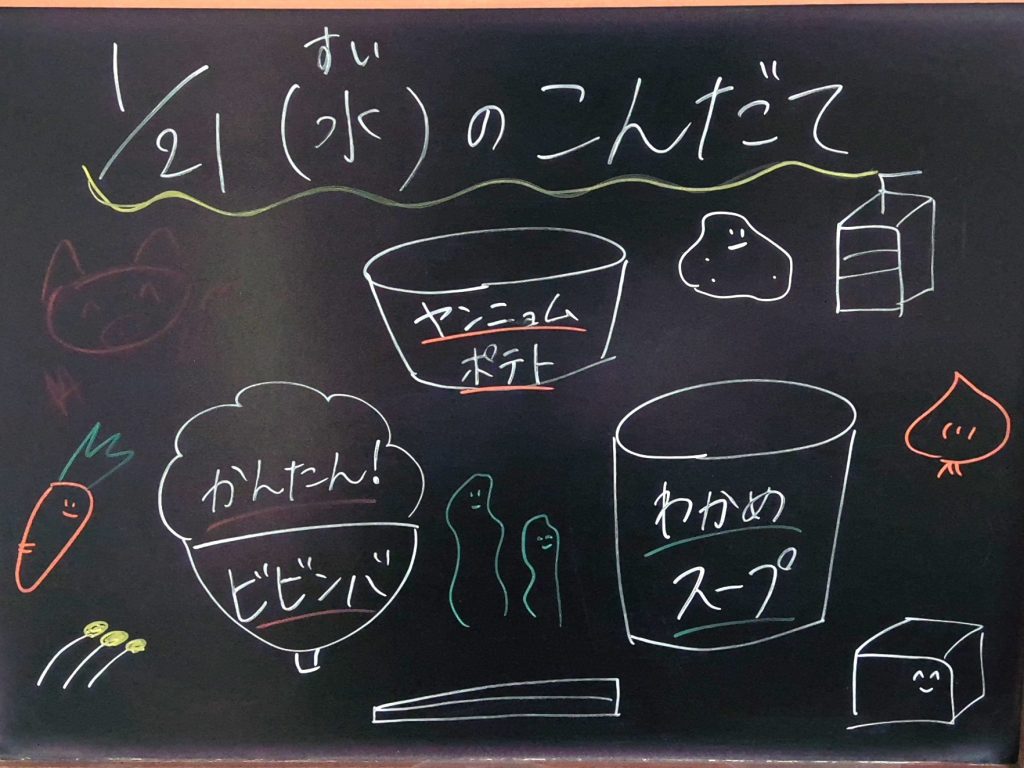 すい
1/21(水)のこんだて
ヤンニョム
ポテト
かんたん!
ビビンバ
わかめ
スープ